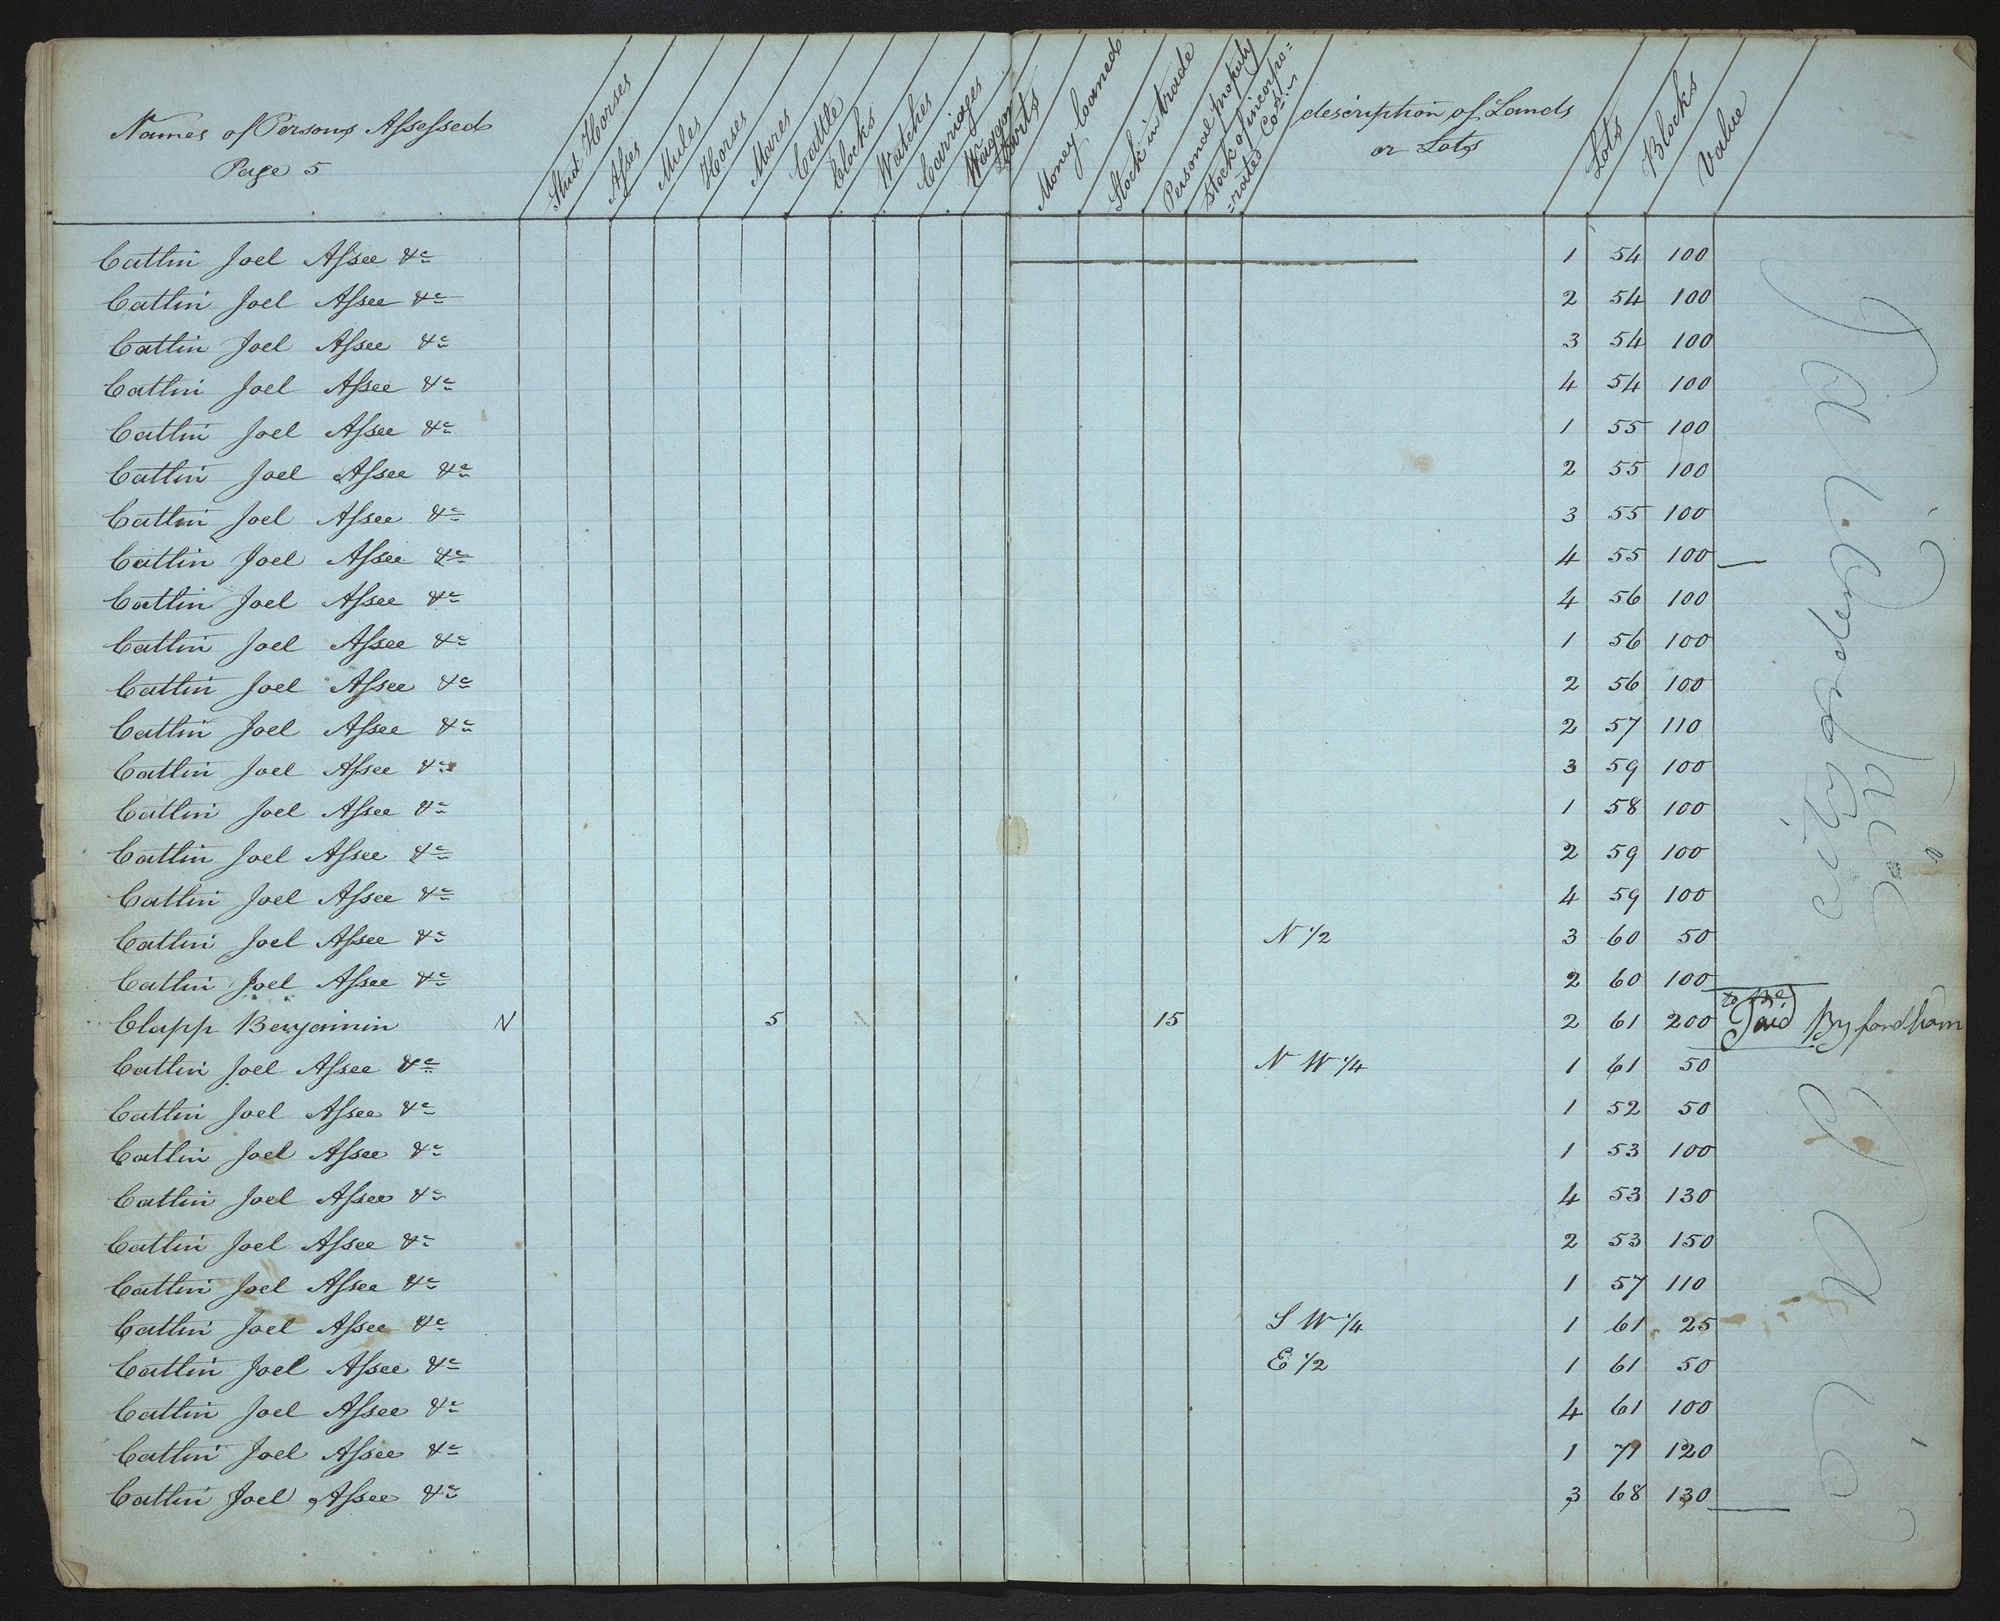 Names of Persons Assessed
Page 5
Stud Horses
Asses
Mules
Horses
Mares
Cattle
Clocks
Watches
Carriages
Waggons
Carts
Money loaned
Stock in trade
Personal property
Stock of incorpo=
=rated Co-s
description of Lands
or Lots
Lots
Blocks
Value
Catlin Joel Assee &c 1 54 100
Catlin Joel Assee &c 2 54 100
Catlin Joel Assee &c 3 54 100
Catlin Joel Assee &c 4 54 100
Catlin Joel Assee &c 1 55 100
Catlin Joel Assee &c 2 55 100
Catlin Joel Assee &c 3 55 100
Catlin Joel Assee &c 4 55 100
Catlin Joel Assee &c 4 56 100
Catlin Joel Assee &c 1 56 100
Catlin Joel Assee &c 2 56 100
Catlin Joel Assee &c 2 57 110
Catlin Joel Assee &c 3 59 100
Catlin Joel Assee &c 1 58 100
Catlin Joel Assee &c 2 59 100
Catlin Joel Assee &c 4 59 100
Catlin Joel Assee &c N 1/2 3 60 50
Catlin Joel Assee &c 2 60 100
Clapp Benjamin N 5 15 2 61 200 to Be Paid By fordham
Catlin Joel Assee &c N W 1/4 1 61 50
Catlin Joel Assee &c 1 52 50
Catlin Joel Assee &c 1 53 100
Catlin Joel Assee &c 4 53 130
Catlin Joel Assee &c 2 53 150
Catlin Joel Assee &c 1 57 110
Catlin Joel Assee &c S W 1/4 1 61 25
Catlin Joel Assee &c E 1/2 1 61 50
Catlin Joel Assee &c 4 61 100
Catlin Joel Assee &c 1 71 120
Catlin Joel Assee &c 3 68 130
Paid
Paid